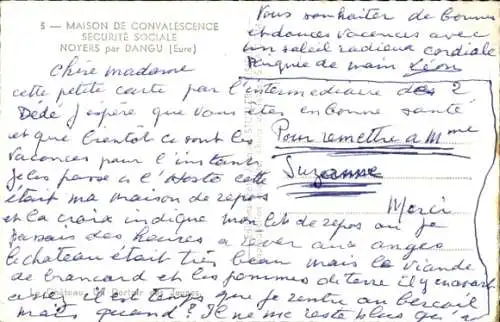 5 — MAISON DE CONVALESCENCE
SECURITÉ SOCIALE
NOYERS par DANGU (Eure)
Chère madame
cette petite carte par l'intermédiaire des 2
Dédé j'espère que vous êtes en bonne santé
et que bientôt ce sont les
vacances pour l'instant
je les passe a l'Hosto cette
était ma maison de repos
et la croix indique mon lit de repos ou je
passais des heures a rêver aux anges
le château était très beau mais la viande
de brancard et les pommes de terre il y en avait
assez il est temps que je rentre au bercail
mais quand? Il ne me reste plus qu'a
vous souhaiter de bonnes
et douces vacances avec
un soleil radieux cordiale
Poignée de main Léon
Pour remettre a Mme
Suzanne
Merci
Le Château, Le Dortoir des Jeunes